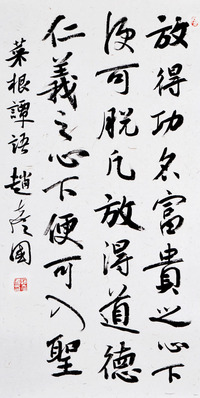 放得功名富貴之心下
便可脱凡放得道德
仁義之心下便可入聖
菜根譚語 趙彥國